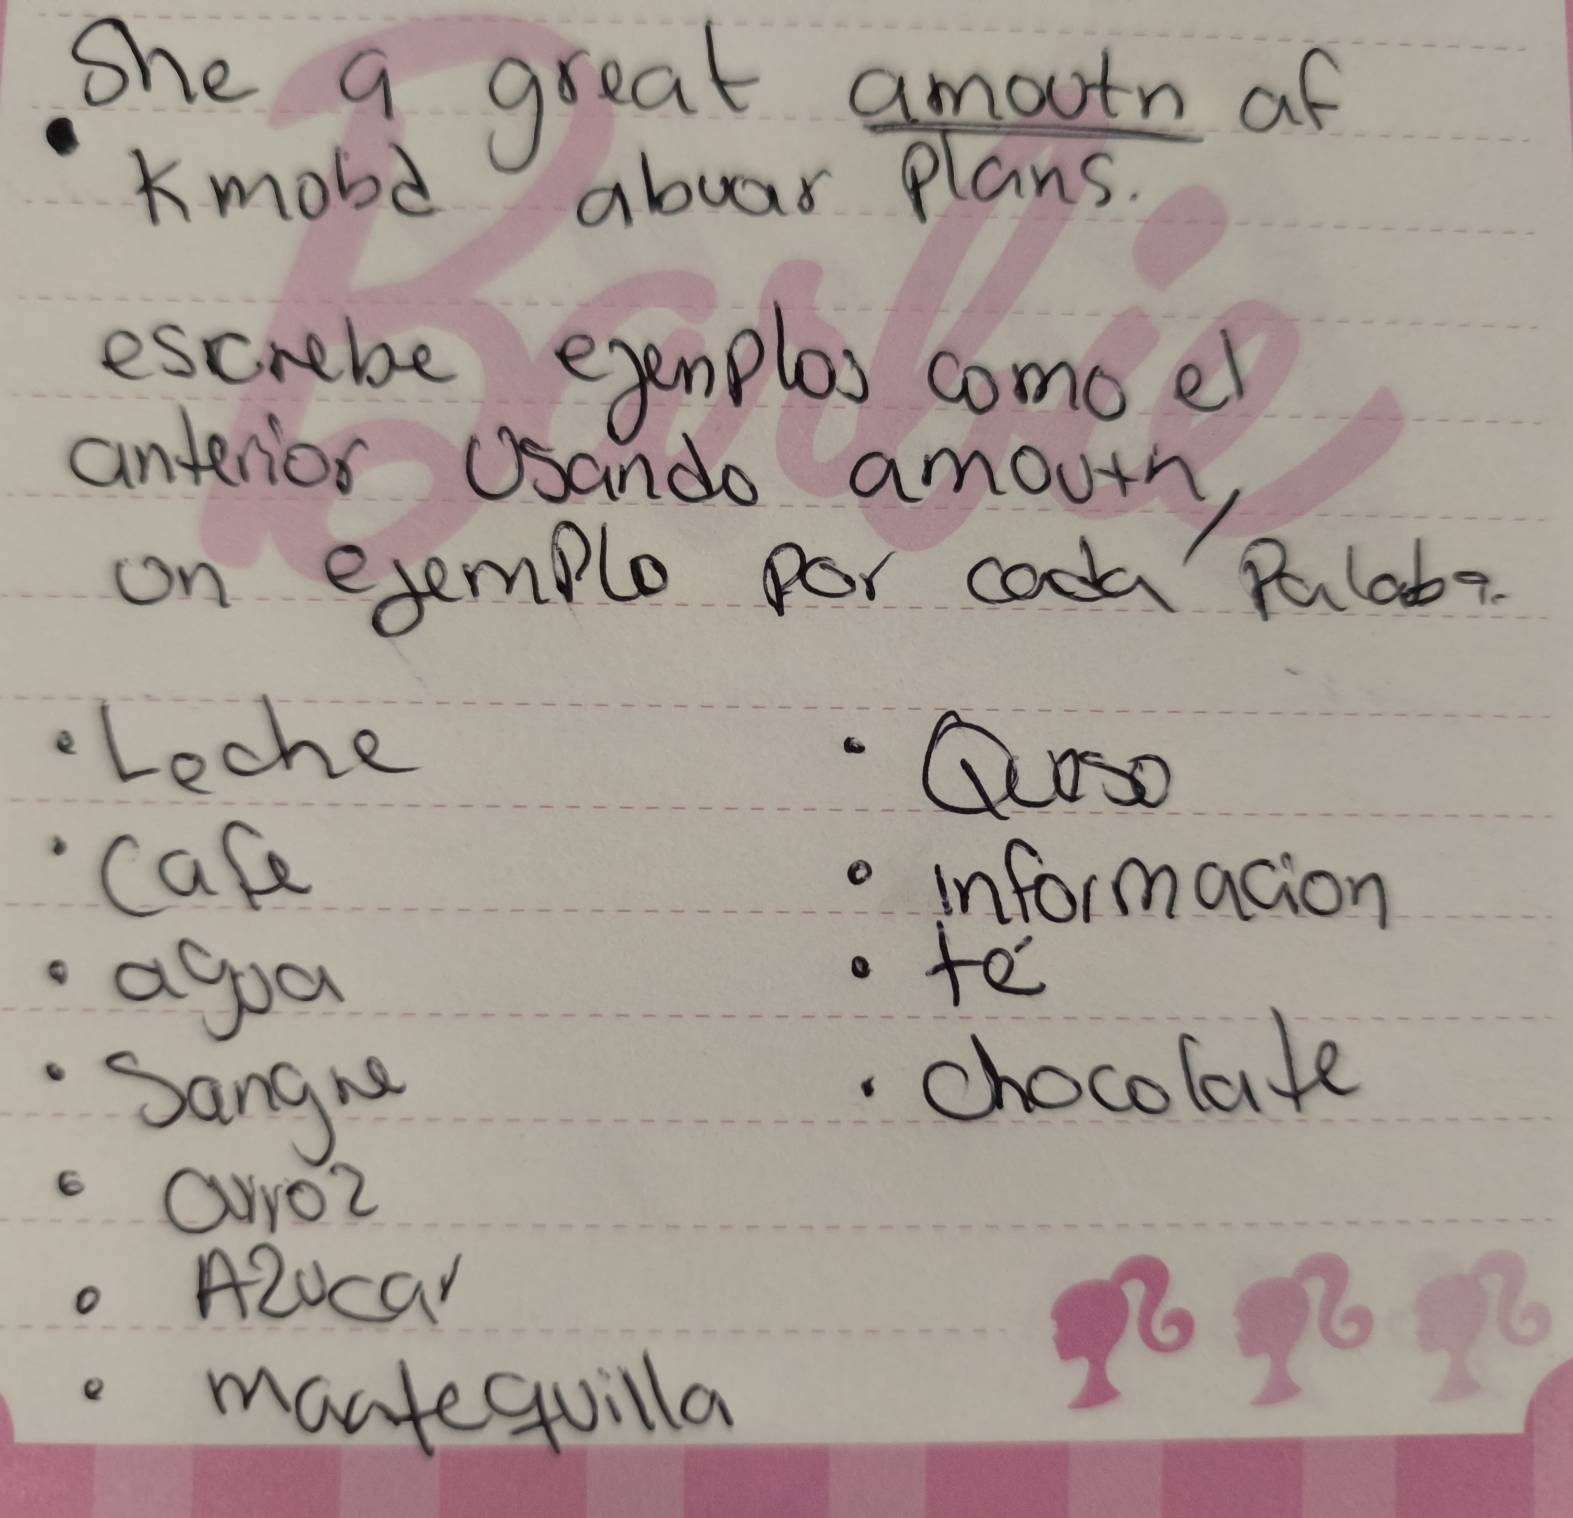 She a great amoutn af
• Kmobd abuar Plans.
Barbie
escrebe ejenplos como el
anterior Usando amoutn,
un ejemplo por cada Palaba.
• Leche
• Cafe
• agua
• Sangre
• arroz
• Azucar
• mantequilla
• Queso
• informacion
• té
• chocolate